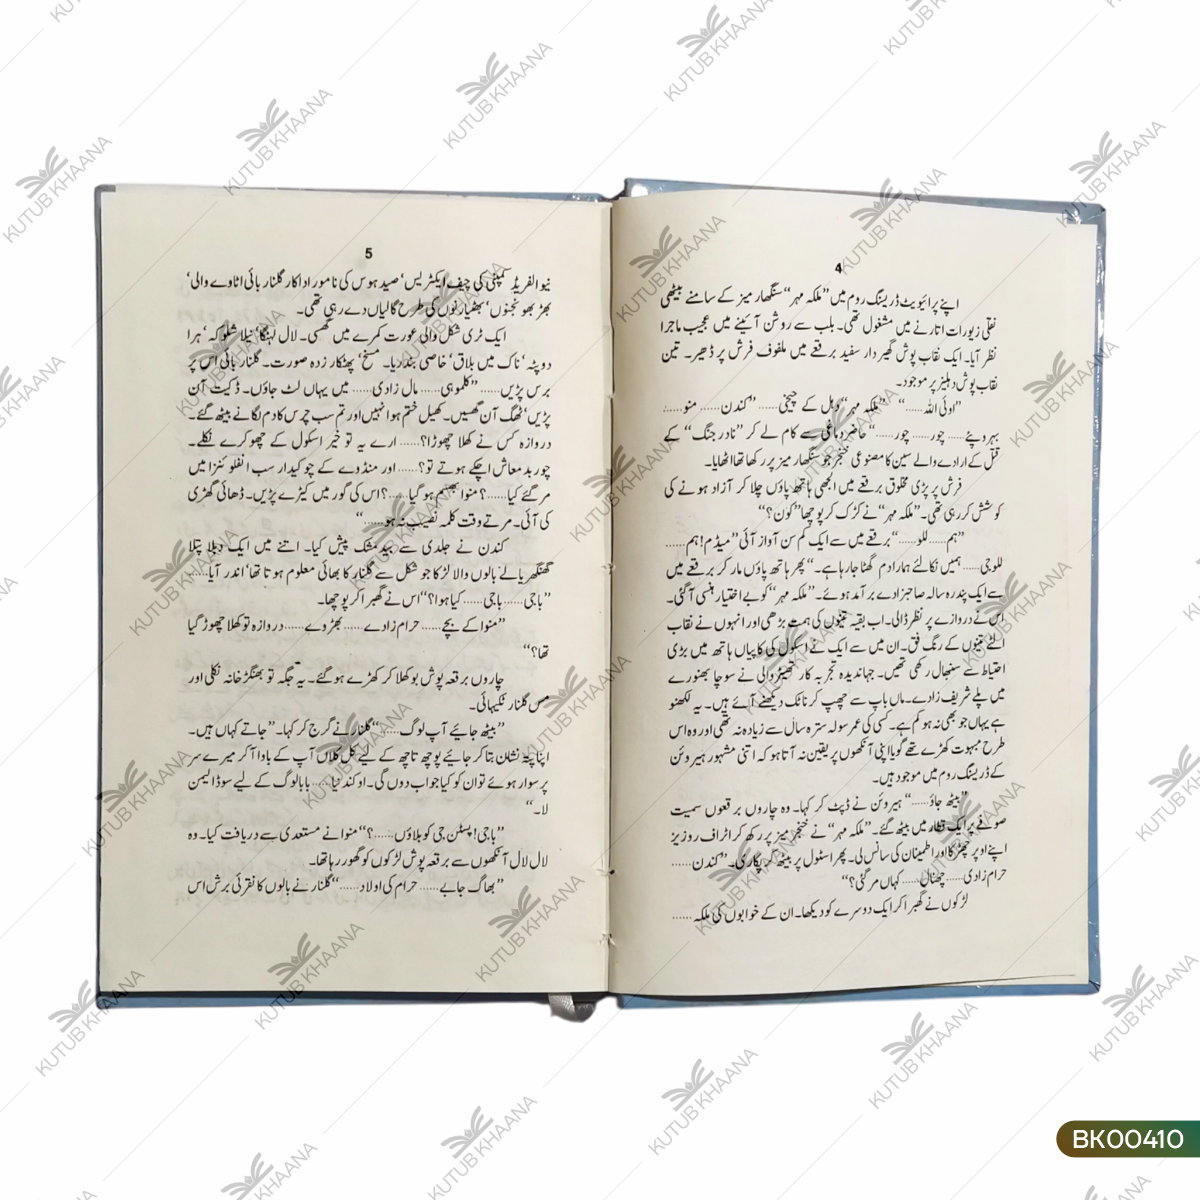 4
اپنے پرائیویٹ ڈریسنگ روم میں ”ملکہ مہر“ سنگھار میز کے سامنے بیٹھی
نقلی زیورات اتارنے میں مشغول تھی۔ بلب سے روشن آئینے میں عجیب ماجرا
نظر آیا۔ ایک نقاب پوش گھیر دار سفید برقعے میں ملفوف فرش پر ڈھیر۔ تین
نقاب پوش دہلیز پر موجود۔
”اوئی اللہ......“ ”ملکہ مہر“ دہل کے چیخی...... ”کندن...... منو......
بہروپئے...... چور...... چور......“ حاضر دماغی سے کام لے کر ”نادر جنگ“ کے
قتل کے ارادے والے سین کا مصنوعی خنجر جو سنگھار میز پر رکھا تھا اٹھایا۔
فرش پر پڑی مخلوق برقعے میں الجھی ہاتھ پاؤں چلا کر آزاد ہونے کی
کوشش کر رہی تھی۔ ”ملکہ مہر“ نے کڑک کر پوچھا ”کون؟“
”ہم...... للو......“ برقعے میں سے ایک کم سن آواز آئی ”میڈم! ہم......
للو جی...... ہمیں نکالئے ہمارا دم گھٹا جا رہا ہے۔“ پھر ہاتھ پاؤں مار کر برقعے میں
سے ایک پندرہ سالہ صاحبزادے برآمد ہوئے۔ ”ملکہ مہر“ کو بے اختیار ہنسی آگئی۔
اس نے دروازے پر نظر ڈالی۔ اب بقیہ تینوں کی ہمت بڑھی اور انہوں نے نقاب
الٹے تینوں کے رنگ فق۔ ان میں سے ایک نے اسکول کی کاپیاں ہاتھ میں بڑی
احتیاط سے سنبھال رکھی تھیں۔ جہاندیدہ تجربہ کار تھیٹر والی نے سوچا بھنورے
میں پلے شریف زادے۔ ماں باپ سے چھپ کر ناٹک دیکھنے آئے ہیں۔ یہ لکھنو
ہے یہاں جو بھی نہ ہو کم ہے۔ کسی کی عمر سولہ سترہ سال سے زیادہ نہ تھی اور وہ اس
طرح مبہوت کھڑے تھے گویا اپنی آنکھوں پر یقین نہ آتا ہو کہ اتنی مشہور ہیروئن
کے ڈریسنگ روم میں موجود ہیں۔
”بیٹھ جاؤ......“ ہیروئن نے ڈپٹ کر کہا۔ وہ چاروں برقعوں سمیت
صوفے پر ایک قطار میں بیٹھ گئے۔ ”ملکہ مہر“ نے خنجر میز پر رکھ کر اٹراف روزیز
اپنے اوپر چھڑکا اور اطمینان کی سانس لی۔ پھر اسٹول پر بیٹھ کر پکاری۔ ”کندن......
حرام زادی...... چھنال...... کہاں مر گئی؟“
لڑکوں نے گھبرا کر ایک دوسرے کو دیکھا۔ ان کے خوابوں کی ملکہ......
5
نیو الفریڈ کمپنی کی چیف ایکٹریس‘ صید ہوس کی نامور اداکار گلنار بائی اٹاوے والی‘
بھڑ بھونجنوں‘ بھٹیارنوں کی طرح گالیاں دے رہی تھی۔
ایک ٹری شکل والی عورت کمرے میں گھسی۔ لال لہنگا‘ نیلا شلوکہ‘ ہرا
دوپٹہ‘ ناک میں بلاق‘ خاصی بندریا۔ مسخ‘ پھٹکار زدہ صورت۔ گلنار بائی اس پر
برس پڑیں...... ”کلموہی...... مال زادی...... میں یہاں لٹ جاؤں۔ ڈکیت آن
پڑیں‘ ٹھگ آن گھسیں۔ کھیل ختم ہوا نہیں اور تم سب چرس کا دم لگانے بیٹھ گئے۔
دروازہ کس نے کھلا چھوڑا؟...... ارے یہ تو خیر اسکول کے چھوکرے نکلے۔
چور بدمعاش اچکے ہوتے تو؟...... اور منڈوے کے چوکیدار سب انفلوئنزا میں
مر گئے کیا......؟ منوا بھسم ہو گیا......؟ اس کی گور میں کیڑے پڑیں۔ ڈھائی گھڑی
کی آئی۔ مرتے وقت کلمہ نصیب نہ ہو......“
کندن نے جلدی سے بید مشک پیش کیا۔ اتنے میں ایک دبلا پتلا
گھنگھریالے بالوں والا لڑکا جو شکل سے گلنار کا بھائی معلوم ہوتا تھا‘ اندر آیا......
”باجی...... باجی...... کیا ہوا؟“ اس نے گھبرا کر پوچھا۔
”منوا کے بچے...... حرام زادے...... بھڑوے...... دروازہ تو کھلا چھوڑ گیا
تھا؟“
چاروں برقعہ پوش بوکھلا کر کھڑے ہو گئے۔ یہ جگہ تو بھنگڑ خانہ نکلی اور
مس گلنار ٹکہائی۔
”بیٹھ جائیے آپ لوگ......“ گلنار نے گرج کر کہا۔ ”جاتے کہاں ہیں۔
اپنا پتہ نشان بتا کر جائیے پوچھ تاچھ کے لیے کل کلاں آپ کے باوا آ کر میرے سر
پر سوار ہوئے تو ان کو کیا جواب دوں گی۔ او کندنیا...... بابا لوگ کے لیے سوڈا لیمن
لا۔“
”باجی! پسٹن جی کو بلاؤں......؟“ منوا نے مستعدی سے دریافت کیا۔ وہ
لال لال آنکھوں سے برقعہ پوش لڑکوں کو گھور رہا تھا۔
”بھاگ جا بے...... حرام کی اولاد......“ گلنار نے بالوں کا نقرئی برش اس
KUTUB KHAANA
BK00410